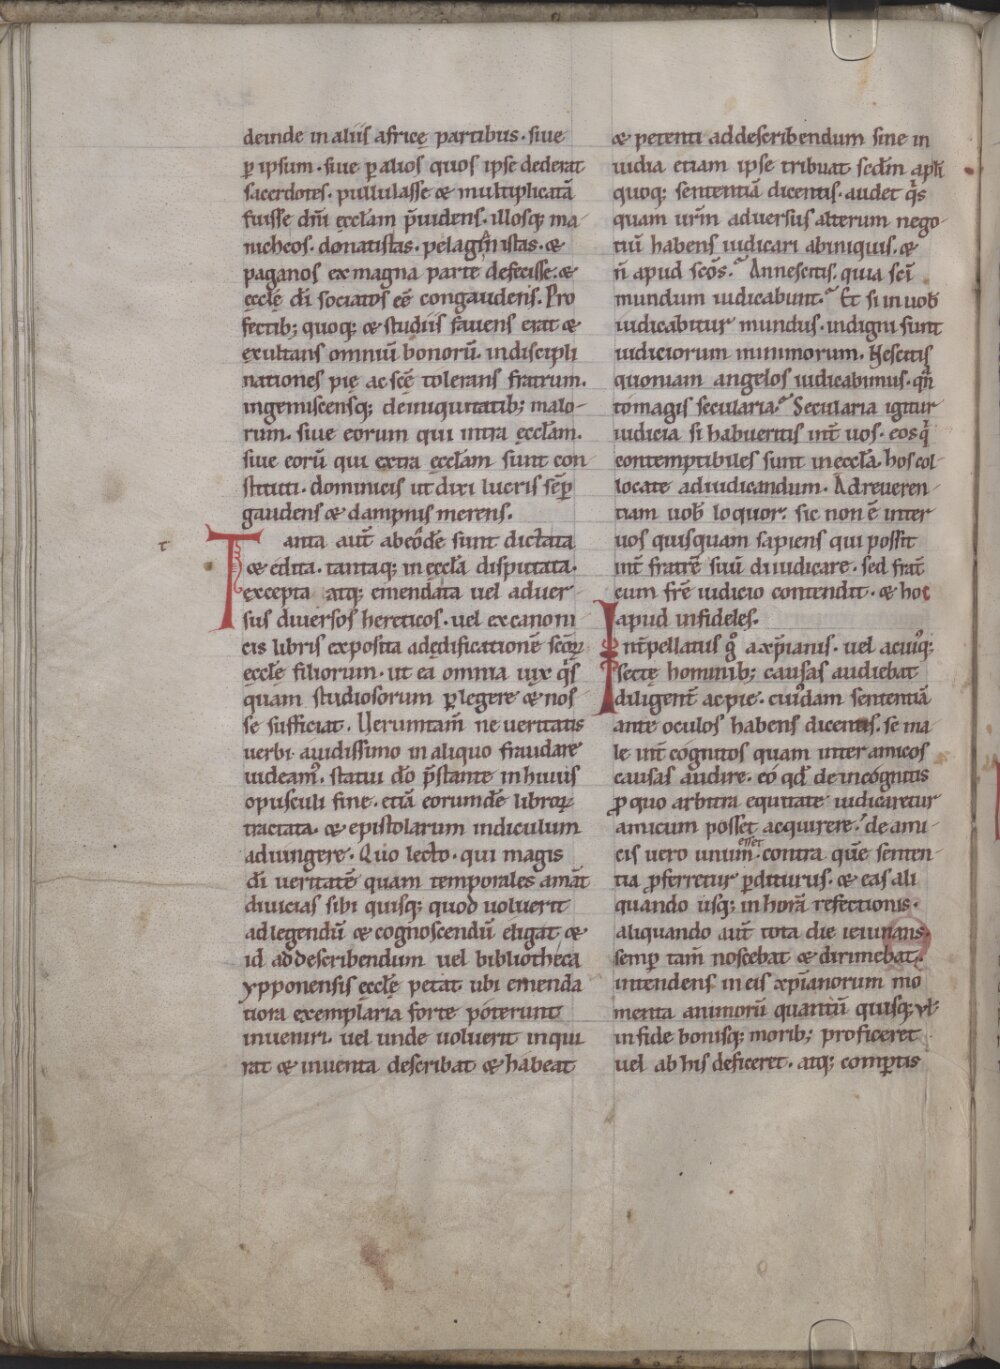 deinde in aliis africę partibus. siue
ꝑ ipsum. siue ꝑ alios quos ipse dederat
sacerdotes. pullulasse & multiplicatā
fuisse dn̄i ęccl̄am p̄uidens. illosq; ma-
nicheos. donatistas. pelagianistas. &
paganos ex magna parte defecisse. &
ęccl̄ę dī sociatos eē congaudens. Pro
fectib; quoq; & studiis fauens erat &
exultans omniū bonorū. indiscipli
nationes pie ac scē tolerans fratrum.
ingemiscensq; de iniquitatib; malo-
rum. siue eorum qui intra ęccl̄am.
siue eorū qui extra ęccl̄am sunt con-
stituti. dominicis ut dixi lucris sēꝑ
gaudens & dampnis merens.
Tanta aut̄ ab eodē sunt dictata
& edita. tantaq; in ęccl̄a disputata.
excepta atq; emendata uel aduer-
sus diuersos hereticos. uel ex canoni
cis libris exposita ad ędificationē scōꝝ
ęccl̄ę filiorum. ut ea omnia uix q̄s
quam studiosorum ꝑlegere & nos-
se sufficiat. Uerumtam̄ ne ueritatis
uerbi auidissimo in aliquo fraudare
uideamꝰ. statui dō p̄stante in huius
opusculi fine. etiā eorundē libroꝝ
tractata. & epistolarum indiculum
adiungere. Quo lecto. qui magis
dī ueritatē quam temporales amāt
diuicias sibi quisq; quod uoluerit
ad legendū & cognoscendū eligat. &
id ad describendum uel bibliotheca
ypponensis ęccl̄ę petat ubi emenda
tiora exemplaria forte poterunt
inueniri. uel unde uoluerit inqui
rat & inuenta describat & habeat
& petenti ad describendum sine in
uidia etiam ipse tribuat. sedm̄ apl̄i
quoq; sententiā dicentis. audet q̄s
quam ur̄m aduersus alterum nego-
tiū habens iudicari ab iniquis. &
n̄ apud scōs. An nescitis. quia scī
mundum iudicabunt. Et si in uob̄
iudicabitur mundus. indigni sunt
iudiciorum minimorum. Nescitis
quoniam angelos iudicabimus. qn̄
to magis secularia. Secularia igitur
iudicia si habueritis int̄ uos. eos q̄
contemptibiles sunt in eccl̄a. hos col-
locate ad iudicandum. Ad reueren-
tiam uob̄ loquor. sic non ē inter
uos quisquam sapiens qui possit
int̄ fratrē suū diiudicare. sed frat̄
cum fr̄e iudicio contendit. & hoc
apud infideles.
Int̄pellatus g̊ a xp̄ianis. uel a cuiꝰq;
sectę hominib; causas audiebat
diligent̄ ac pie. cuiꝰdam sententiā
ante oculos habens dicentis. se ma
le int̄ cognitos quam inter amicos
causas audire. eo qd̄ de incognitis
ꝓ quo arbitra equitate iudicaretur
amicum posset acquirere. de ami-
cis uero unum esset. contra quē senten-
tia ꝓferretur ꝑditurus. & eas ali
quando usq; in horā refectionis.
aliquando aut̄ tota die ieiunans.
semꝑ tam̄ noscebat & dirimebat.
intendens in eis xp̄ianorum mo
menta animorū quantū quisq; ul̄
in fide bonisq; morib; proficeret
uel ab his deficeret. atq; comꝑtis